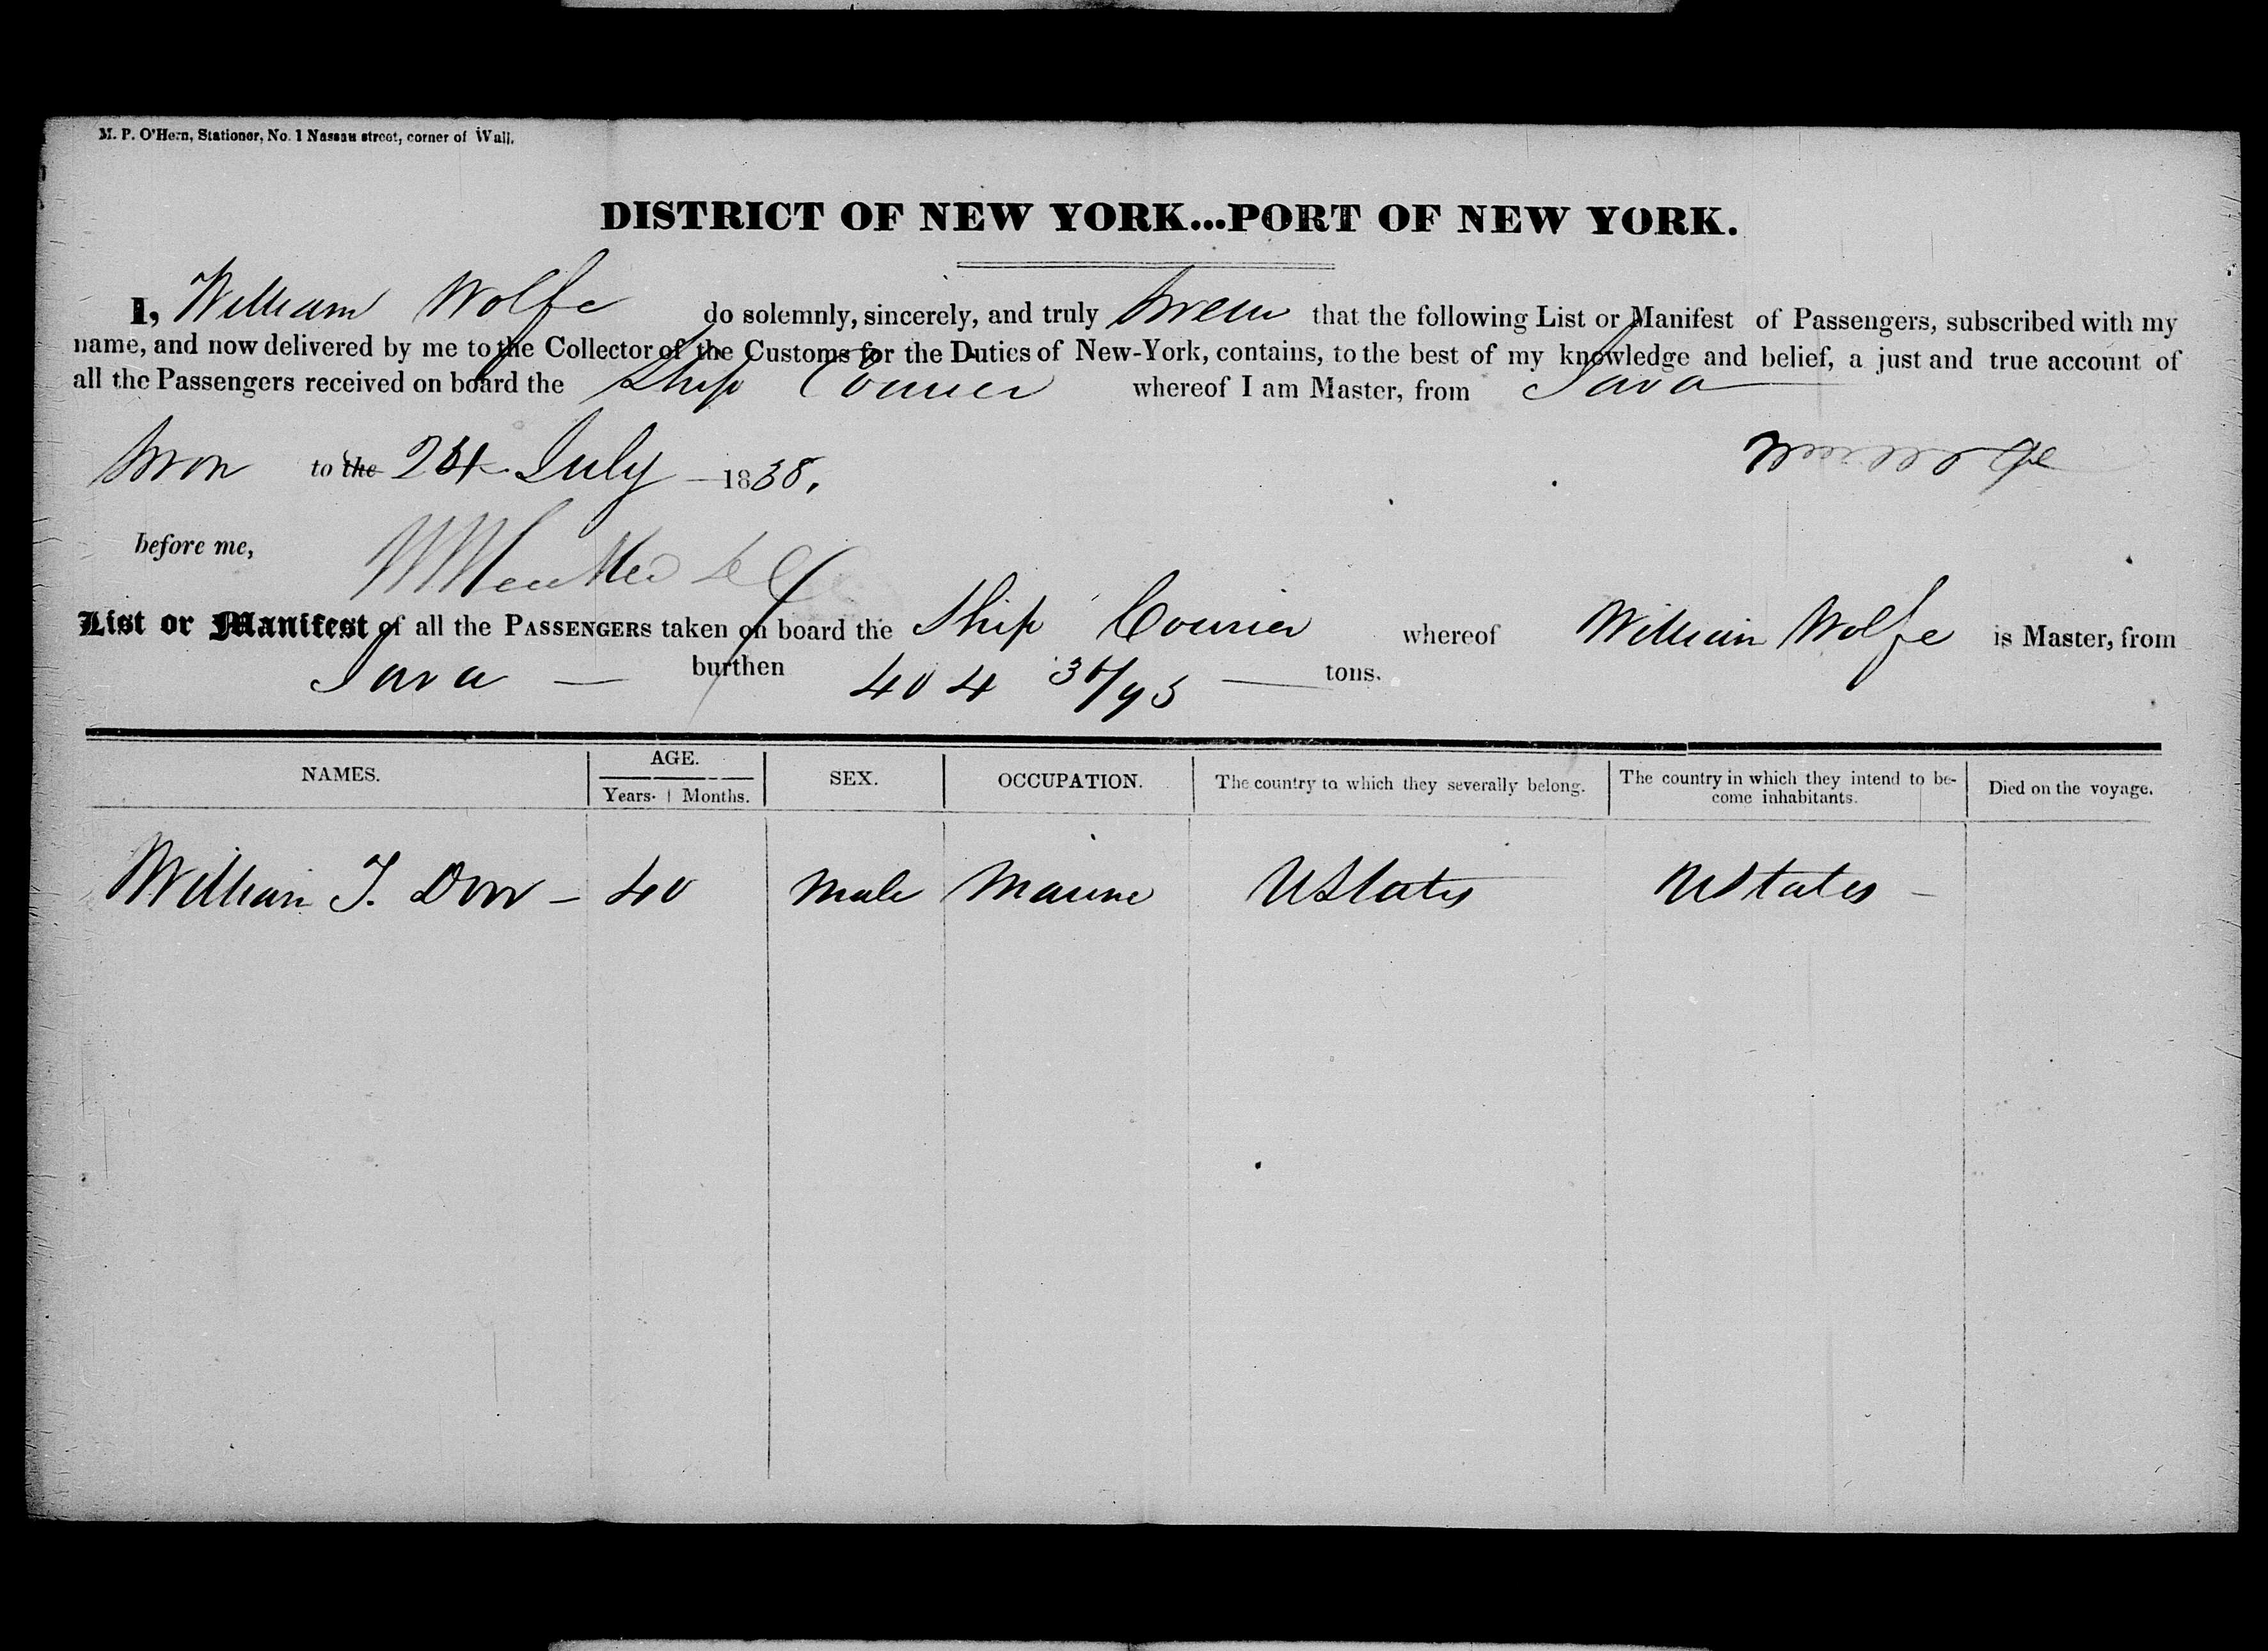 M. P. O'Hern, Stationer, No. 1 Nassau street, corner of Wall.
DISTRICT OF NEW YORK...PORT OF NEW YORK.
I, William Wolfe do solemnly, sincerely, and truly swear that the following List or Manifest of Passengers, subscribed with my
name, and now delivered by me to the Collector of the Customs for the Duties of New-York, contains, to the best of my knowledge and belief, a just and true account of
all the Passengers received on board the Ship Courier whereof I am Master, from Java
Sworn to the July 1838.
before me,
List or Manifest of all the PASSENGERS taken on board the Ship Courier whereof William Wolfe is Master, from
Java — burthen 404 36/95 — tons.
NAMES. AGE. SEX. OCCUPATION. The country to which they severally belong. The country in which they intend to be-
come inhabitants. Died on the voyage.
Years. Months.
William J. Dow — 40 Male Marine UStates UStates —